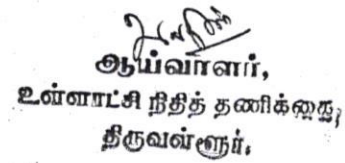 ஆய்வாளர்,
உள்ளாட்சி நிதித் தணிக்கை,
திருவள்ளூர்.